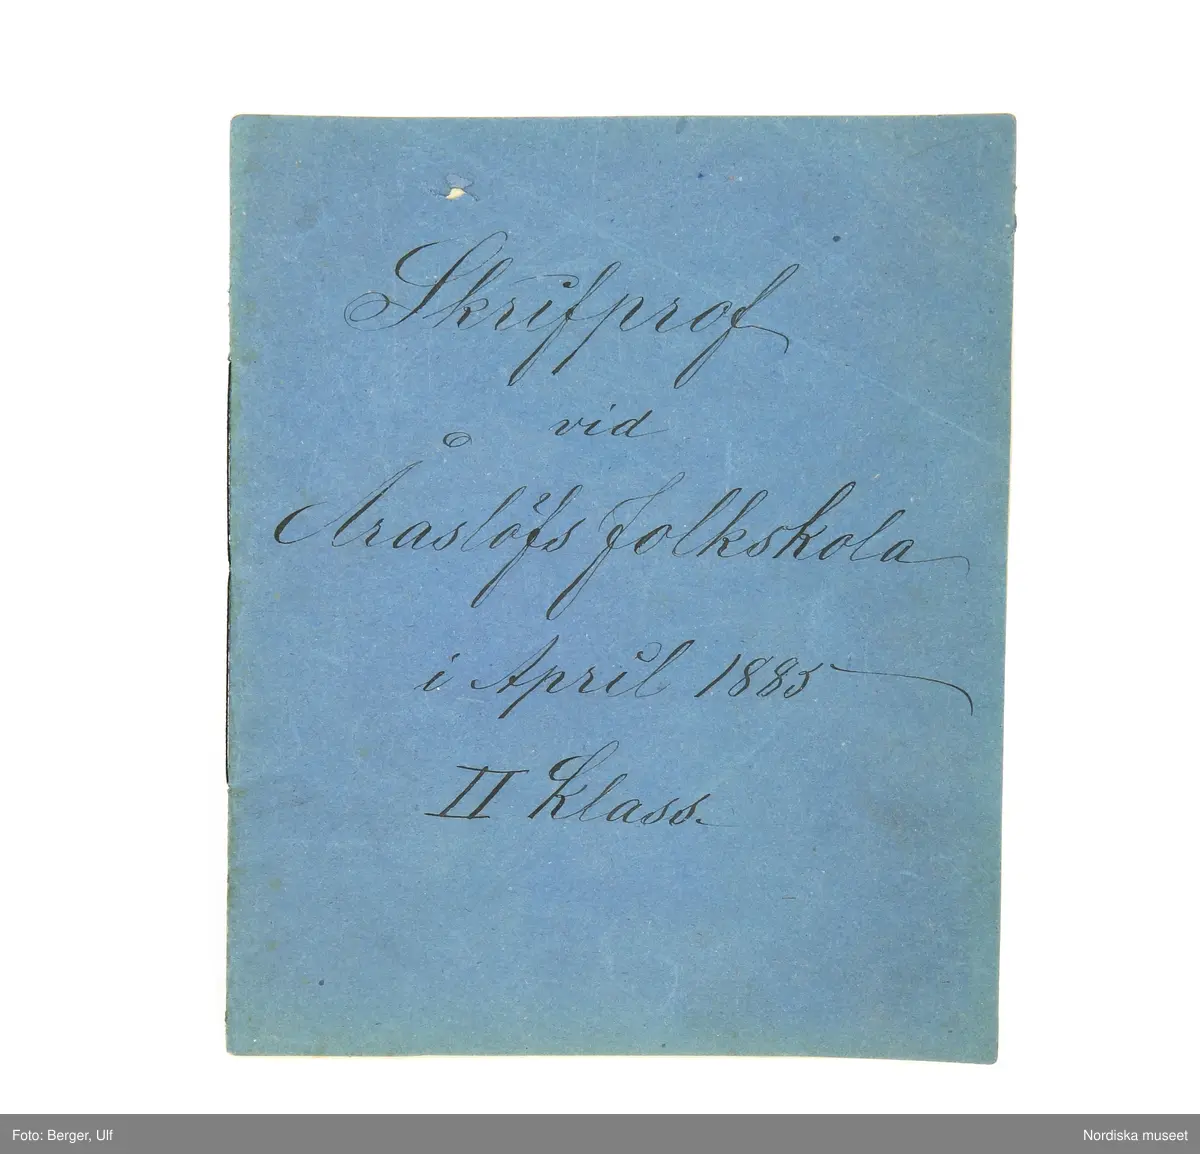 Skrifprof
vid
Åraslöfs folkskola
i April 1885
II Klass.
Foto: Berger, Ulf
Nordiska museet